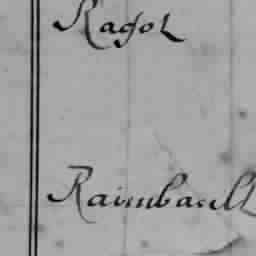 Ragot
Raimbault